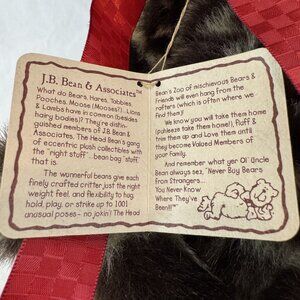 J.B. Bean & Associates™
What do Bears, Hares, Tabbies,
Pooches, Moose (Mooses?)... Lions
& Lambs have in common (besides
being hairy bodies?) They're distin-
guished members of J.B. Bean &
Associates. The Head Bean's gang
of eccentric plush collectibles with
the "right stuff"... bean bag "stuff"
that is.
The wunnerful beans give each
finely crafted critter just the right
weight, feel, and flexibility to hug,
hold, play, or strike up to 1001
unusual poses- no jokin'! The Head
Bean's Zoo of mischievous Bears &
Friends will even hang from the
rafters (which is often where we
find them.)
We know you will take them home
(puhleeze take them home!), Fluff &
trim them up and Love them until
they become Valued Members of
your family.
And remember what yer Ol' Uncle
Bean always sez, 'Never Buy Bears
From Strangers....
You Never Know
Where They've
Been!!!'"